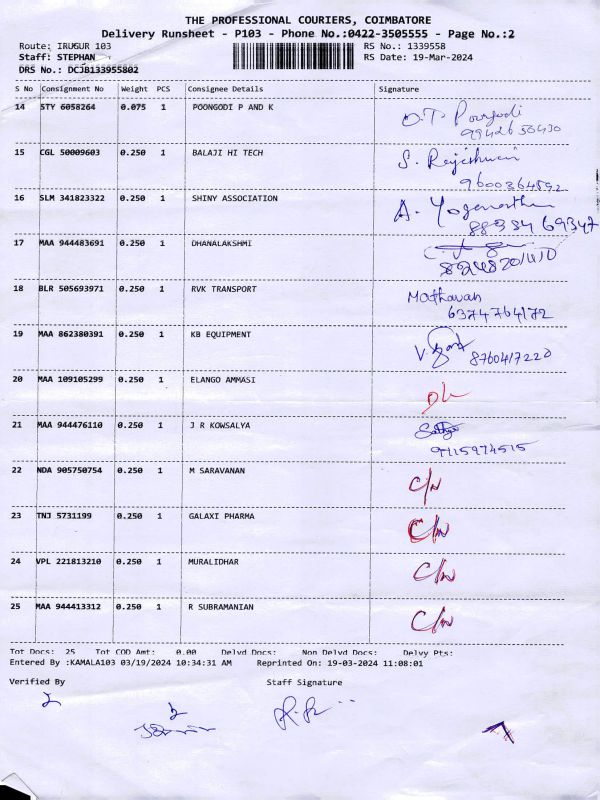 THE PROFESSIONAL COURIERS, COIMBATORE
Delivery Runsheet - P103 - Phone No.:0422-3505555 - Page No.:2
Route: IRUGUR 103 RS No.: 1339558
Staff: STEPHAN RS Date: 19-Mar-2024
DRS No.: DCJB133955802
S No Consignment No Weight PCS Consignee Details Signature
14 STY 6058264 0.075 1 POONGODI P AND K
15 CGL 50009603 0.250 1 BALAJI HI TECH S. Rajeshwari
16 SLM 341823322 0.250 1 SHINY ASSOCIATION A.
88384 69347
17 MAA 944483691 0.250 1 DHANALAKSHMI
18 BLR 505693971 0.250 1 RVK TRANSPORT Mathavan
6374764172
19 MAA 862380391 0.250 1 KB EQUIPMENT 8760417220
20 MAA 109105299 0.250 1 ELANGO AMMASI DL
21 MAA 944476110 0.250 1 J R KOWSALYA Sathya
9715974515
22 NDA 905750754 0.250 1 M SARAVANAN C/N
23 TNJ 5731199 0.250 1 GALAXI PHARMA C/N
24 VPL 221813210 0.250 1 MURALIDHAR C/N
25 MAA 944413312 0.250 1 R SUBRAMANIAN C/N
Tot Docs: 25 Tot COD Amt: 0.00 Delvd Docs: Non Delvd Docs: Delvy Pts:
Entered By :KAMALA103 03/19/2024 10:34:31 AM Reprinted On: 19-03-2024 11:08:01
Verified By Staff Signature